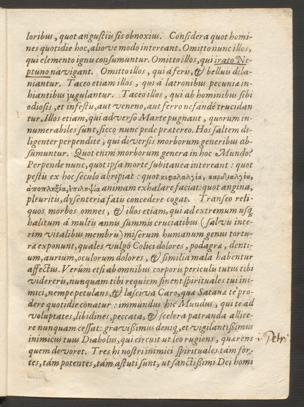 loribus, quot angustiis sis obnoxius. Considera quot homi-
nes quotidie hoc, aliove modo intereant. Omitto nunc illos,
qui elemento ignis consumuntur. Omitto illos, qui irato Ne-
ptuno navigant. Omitto illos, qui à feris, & belluis dila-
niantur. Taceo etiam illos, qui à latronibus pecuniæ in-
hiantibus jugulantur. Taceo illos, qui ab hominibus sibi
odiosis, et infestis, aut veneno, aut ferro nefandè trucidan
tur. Illos etiam, qui adverso Marte pugnant, quorum in-
numerabiles sunt, sicco nunc pede prætereo. Hos saltem di-
ligenter perpendite, qui diversis morborum generibus ab-
sumuntur. Quot enim morborum genera in hoc Mundo?
Perpende nunc, quot ipsa morte subitanea intereant: quot
pestis ex hoc sæculo abripiat: quot κεφαλαλγία, καρδιαλγία,
ἀποπληξία, ἐπιληψία animam exhalare faciat: quot angina,
pleuritis, dysenteria fatis concedere cogat. Transeo reli-
quos morbos omnes, & illos etiam, qui ad extremum usq;
halitum à multis annis summis cruciatibus (salvis inte-
rim vitalibus membris) miserum humanum genus tortu-
ra exponunt, quales vulgò Colici dolores, podagra, denti-
um, aurium, oculorum dolores, & similia mala habentur
affectus. Verùm etsi ab omnibus corporis periculis tutus tibi
videreris, nunquam tibi requiem sinent spirituales tui ini-
mici, nempe petulans, & lasciva Caro, quæ Satanæ te pro-
dere quotidie conatur: immundus hic Mundus, qui te ad
voluptates, libidines, peccata, & scelera patranda allice-
re nunquam cessat: gravissimus deniq, et vigilantissimus
inimicus tuus Diabolus, qui circuit ut leo rugiens, quærens
quem devoret. Tres hi nostri inimici spirituales tàm for-
tes, tàm potentes, tàm astuti sunt, ut sanctissimi Dei homi